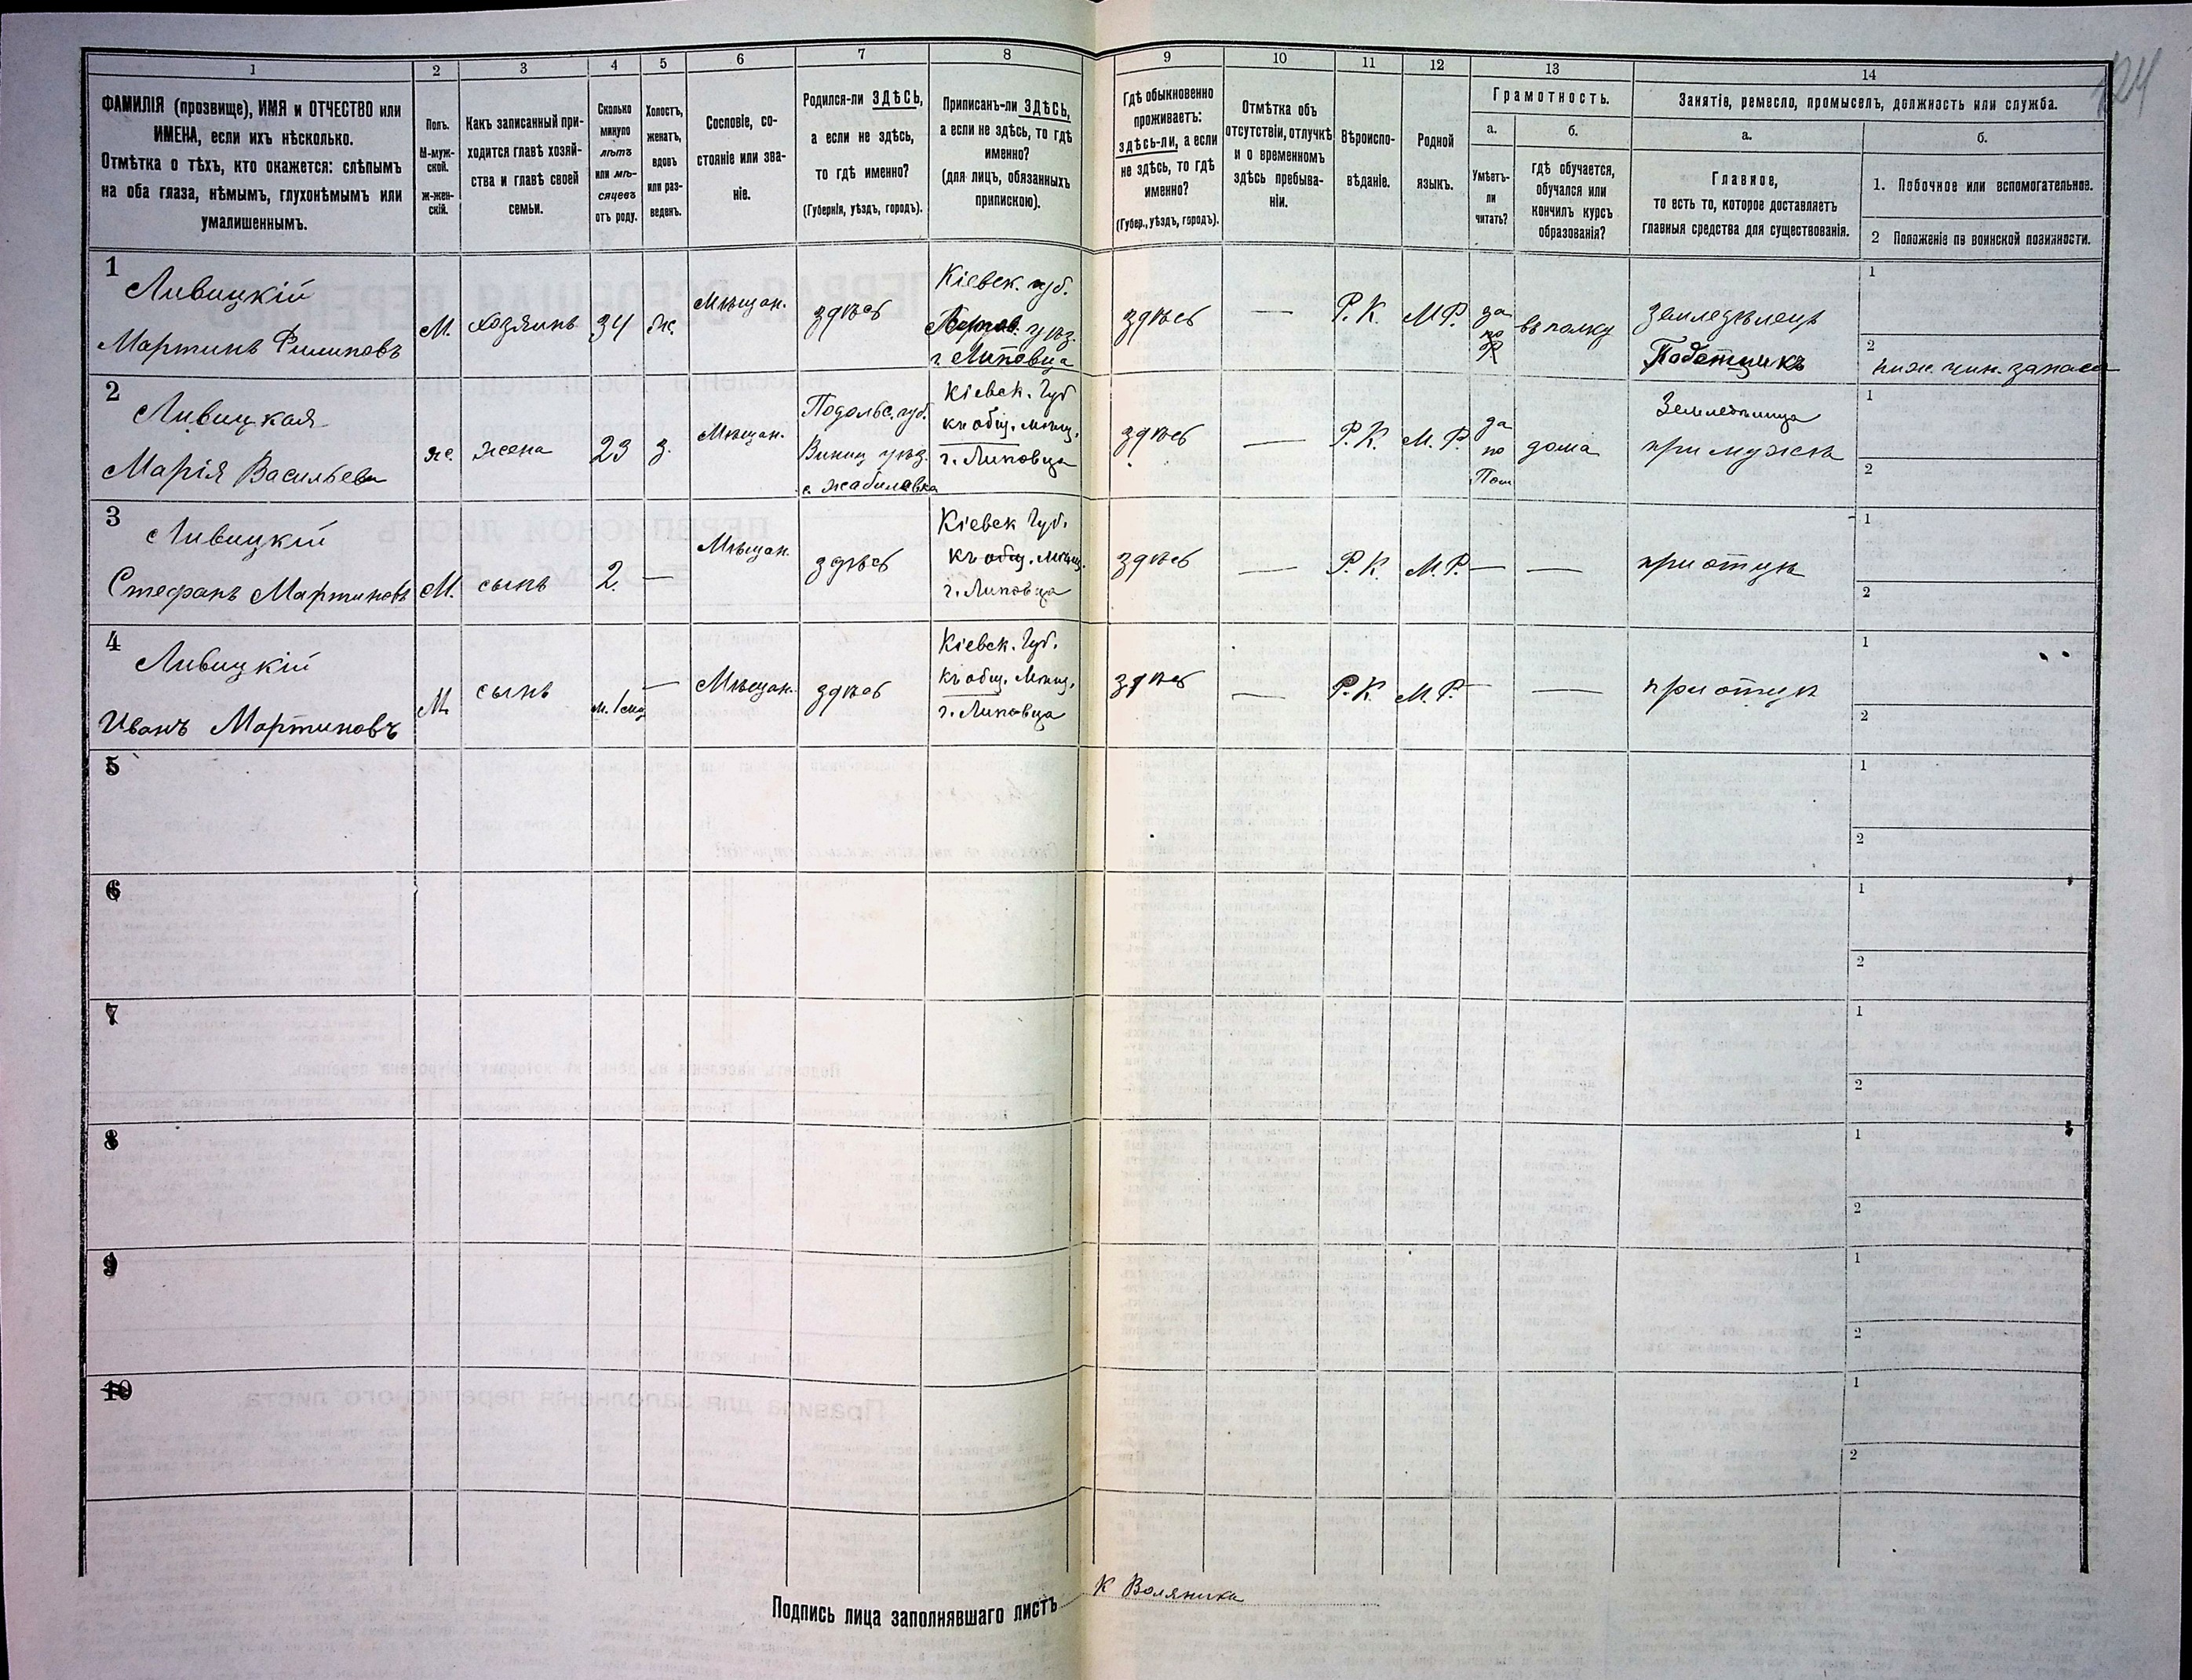 124
1
2
3
4
5
6
7
8
9
10
11
12
13
14
ФАМИЛІЯ (прозвище), ИМЯ и ОТЧЕСТВО или
ИМЕНА, если ихъ нѣсколько.
Отмѣтка о тѣхъ, кто окажется: слѣпымъ
на оба глаза, нѣмымъ, глухонѣмымъ или
умалишеннымъ.
Полъ.
М-муж-
ской.
ж-жен-
скій.
Какъ записанный при-
ходится главѣ хозяй-
ства и главѣ своей
семьи.
Сколько
минуло
лѣтъ
или мѣ-
сяцевъ
отъ роду.
Холостъ,
женатъ,
вдовъ
или раз-
веденъ.
Сословіе, со-
стояніе или зва-
ніе.
Родился-ли ЗДѢСЬ,
а если не здѣсь,
то гдѣ именно?
(Губернія, уѣздъ, городъ).
Приписанъ-ли ЗДѢСЬ,
а если не здѣсь, то гдѣ
именно?
(для лицъ, обязанныхъ
припискою).
Гдѣ обыкновенно
проживаетъ:
здѣсь-ли, а если
не здѣсь, то гдѣ
именно?
(Губер., уѣздъ, городъ).
Отмѣтка объ
отсутствіи, отлучкѣ
и о временномъ
здѣсь пребыва-
ніи.
Вѣроиспо-
вѣданіе.
Родной
языкъ.
Грамотность.
а.
Умѣетъ-
ли
читать?
б.
гдѣ обучается,
обучался или
кончилъ курсъ
образованія?
Занятіе, ремесло, промыселъ, должность или служба.
а.
Главное,
то есть то, которое доставляетъ
главныя средства для существованія.
б.
1. Побочное или вспомогательное.
2 Положеніе по воинской повинности.
1
Ливицкій
Мартинъ Филиповъ
М.
хозяинъ
34
ж.
Мѣщан.
здѣсь
Кіевск. губ.
уѣз.
г. Липовца
здѣсь
—
Р. К.
М Р.
да
по
въ полку
земледѣлецъ
1
2
ниж. чин. запаса
2
Ливицкая
Марія Васильева
ж.
жена
23
з.
Мѣщан.
Подольс. губ.
Винниц уѣз.
с. Жабиловка
Кіевск. Губ
къ общ. мѣщ.
г. Липовца
здѣсь
—
Р. К.
М. Р.
да
по
Пол
дома
при мужѣ
1
2
3
Ливицкій
Стефанъ Мартиновъ
М.
сынъ
2.
—
Мѣщан.
здѣсь
Кіевск Губ.
къ общ. мѣщ.
г. Липовца
здѣсь
—
Р. К.
М. Р.
—
—
при отцѣ
1
2
4
Ливицкій
Иванъ Мартиновъ
М.
сынъ
—
Мѣщан.
здѣсь
Кіевск. Губ.
къ общ. Мѣщ.
г. Липовца
здѣсь
—
Р. К.
М. Р.
—
—
при отцѣ
1
2
5
1
2
6
1
2
7
1
2
8
1
2
9
1
2
10
1
2
Подпись лица заполнявшаго листъ